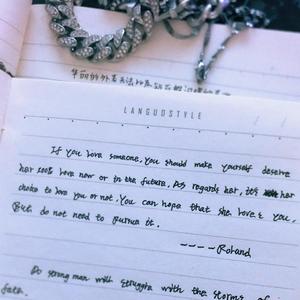 LANGUOSTYLE
If you love someone, you should make yourself deserve
her 100% love now or in the future, As regards her, it's her
choice to love you or not. You can hope that she loves you,
But do not need to pursue it.
----Roland
Do strong man will struggle with the storms of
fate.